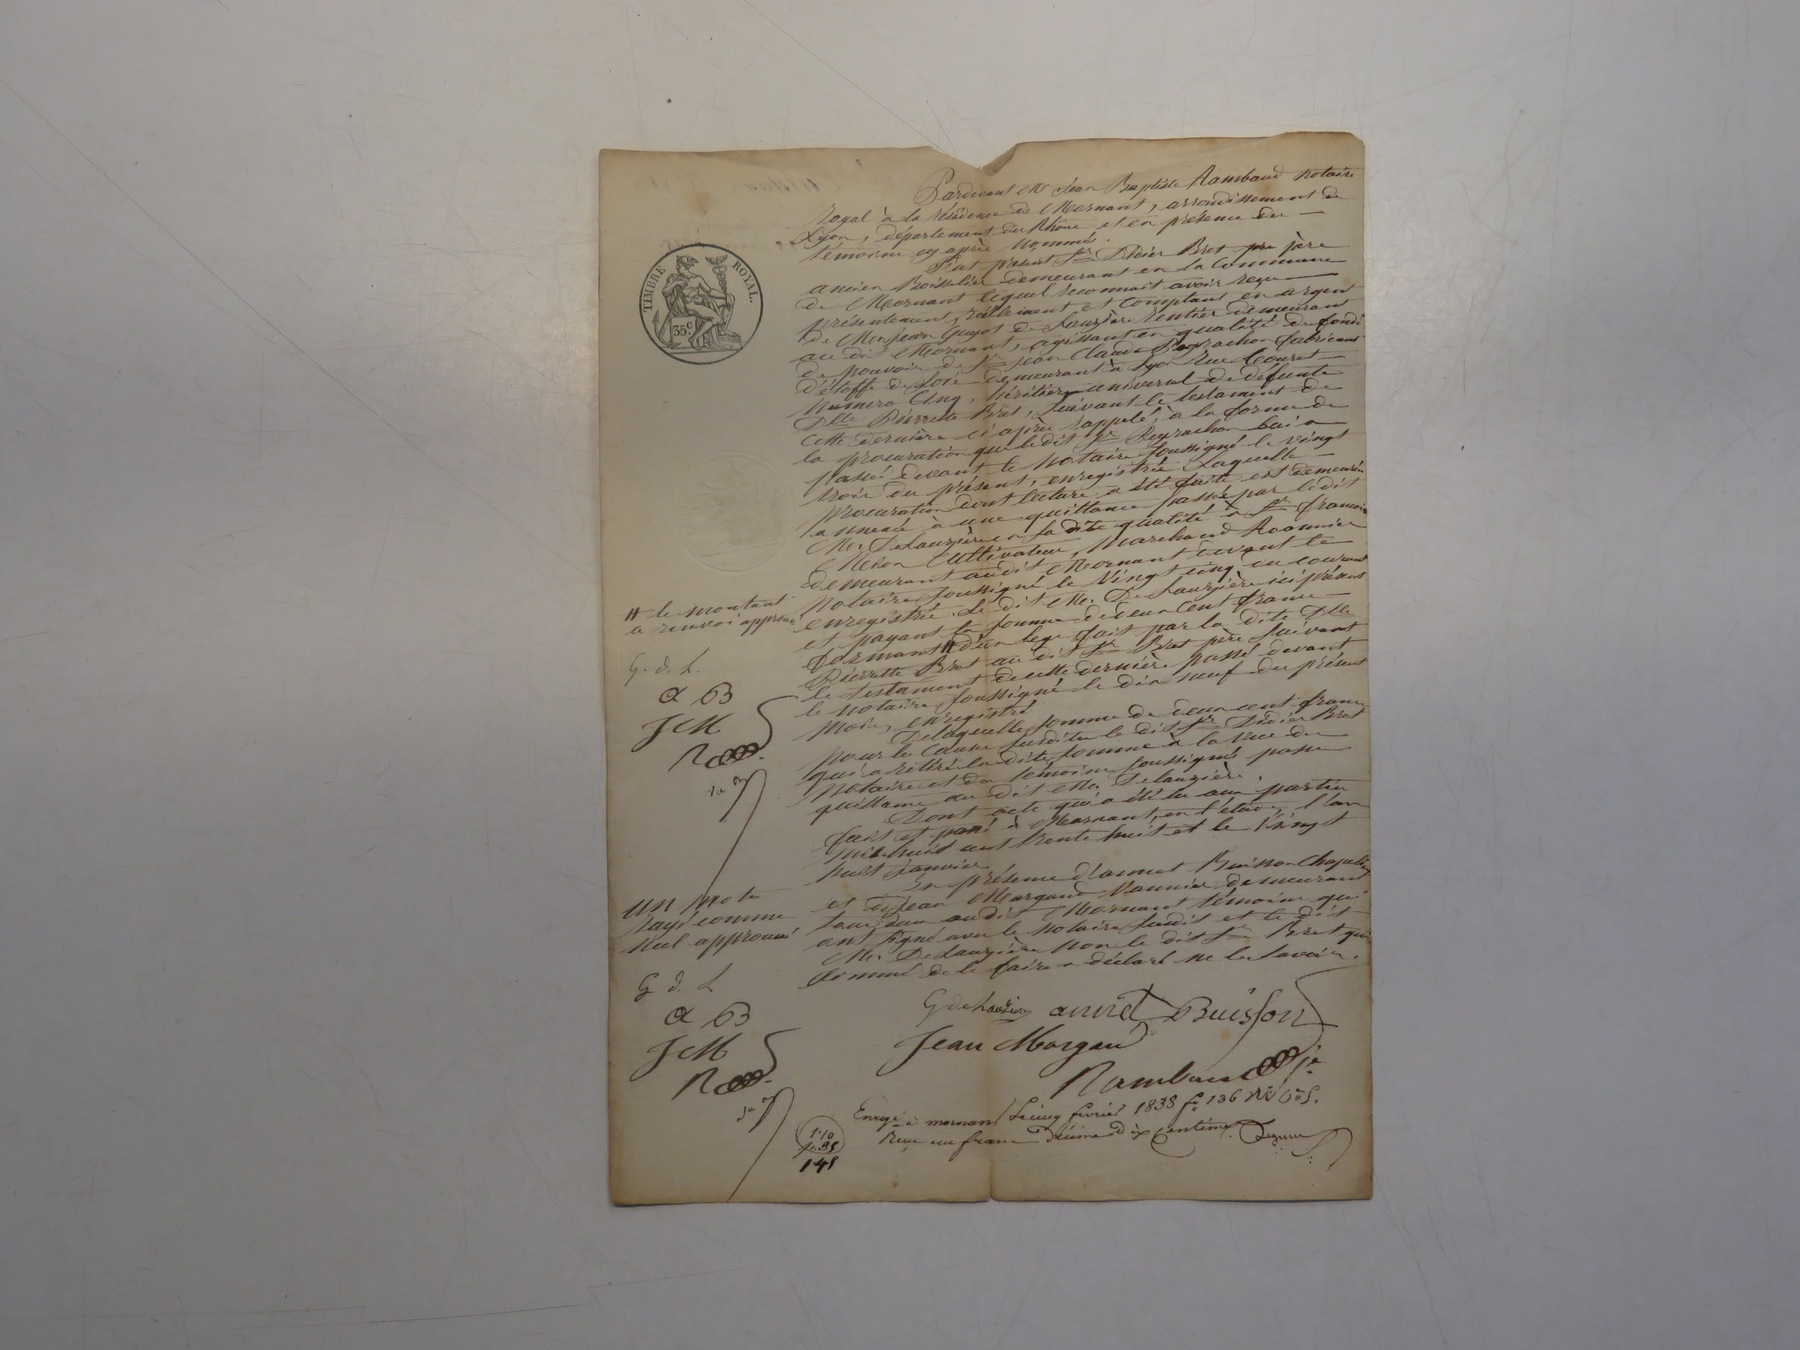 Pardevant Me Jean Baptiste Rambaud notaire
Royal à la résidence de Mornant, arrondissement de
Lyon, département du Rhône et en présence des
témoins cy après nommés.
Fut présent Sr Didier Bret père
ancien demeurant en la Commune
de Mornant lequel reconnait avoir reçu
présentement, réellement et comptant en argent
de Mr Jean Guyot de Lauzière rentier demeurant
au dit Mornant, agissant en qualité de fondé
de pouvoir de Sr Jean Claude Peyrachon fabricant
d'étoffe de soie demeurant à Lyon rue
Numéro Cinq, héritier universel de défunte
Dlle Pierrette Bret, suivant le testament de
cette dernière ci après rappelé, à la forme de
la procuration que le dit Sr Peyrachon lui a
passé devant le notaire soussigné le vingt
trois du présent, enregistrée Laquelle
procuration dont lecture a été faite est demeurée
annexée à une quittance passée par le dit
Mr De Lauzière en sa dite qualité à Sr françois
Cultivateur, Marchand
demeurant audit Mornant devant le
Notaire soussigné le Vingt cinq du courant
enregistrée. Le dit Mr. De Lauzière ici présent
et payant la somme de deux cent francs
formant # d'un legs fait par la dite Dlle
Pierrette Bret au dit Sr Bret père suivant
le testament de cette dernière passé devant
le notaire soussigné le dix neuf du présent
mois, enregistré
De laquelle somme de deux cent francs
pour les Causes susdites le dit Sr Didier Bret
qui a retiré la dite somme à la vue du
Notaire et des témoins soussignés passe
quittance au dit Mr Delauzière.
Dont acte qui a été lu aux parties
fait et passé à Mornant, en l'étude, l'an
mil huit cent trente huit et le Vingt
huit janvier
En présence d'annet Buisson Chapelier
et de Jean Morgand Vannier demeurant
tous deux audit Mornant témoins qui
ont signé avec le Notaire susdit et le dit
Mr. De Lauzière non le dit Sr Bret qui
sommé de le faire a déclaré ne le savoir.
TIMBRE ROYAL.
35c
# le montant
ce renvoi approuvé
G. d. L.
a B
J M
R
un mot
Rayé comme
Nul approuvé
G d L
a B
J M
R
G de Lauzière annet Buisson
Jean Morgand
Rambaud
Enregé à mornant le cinq février 1838 fo 136
Reçu un franc décime dix centimes.
1.10
35
1 45